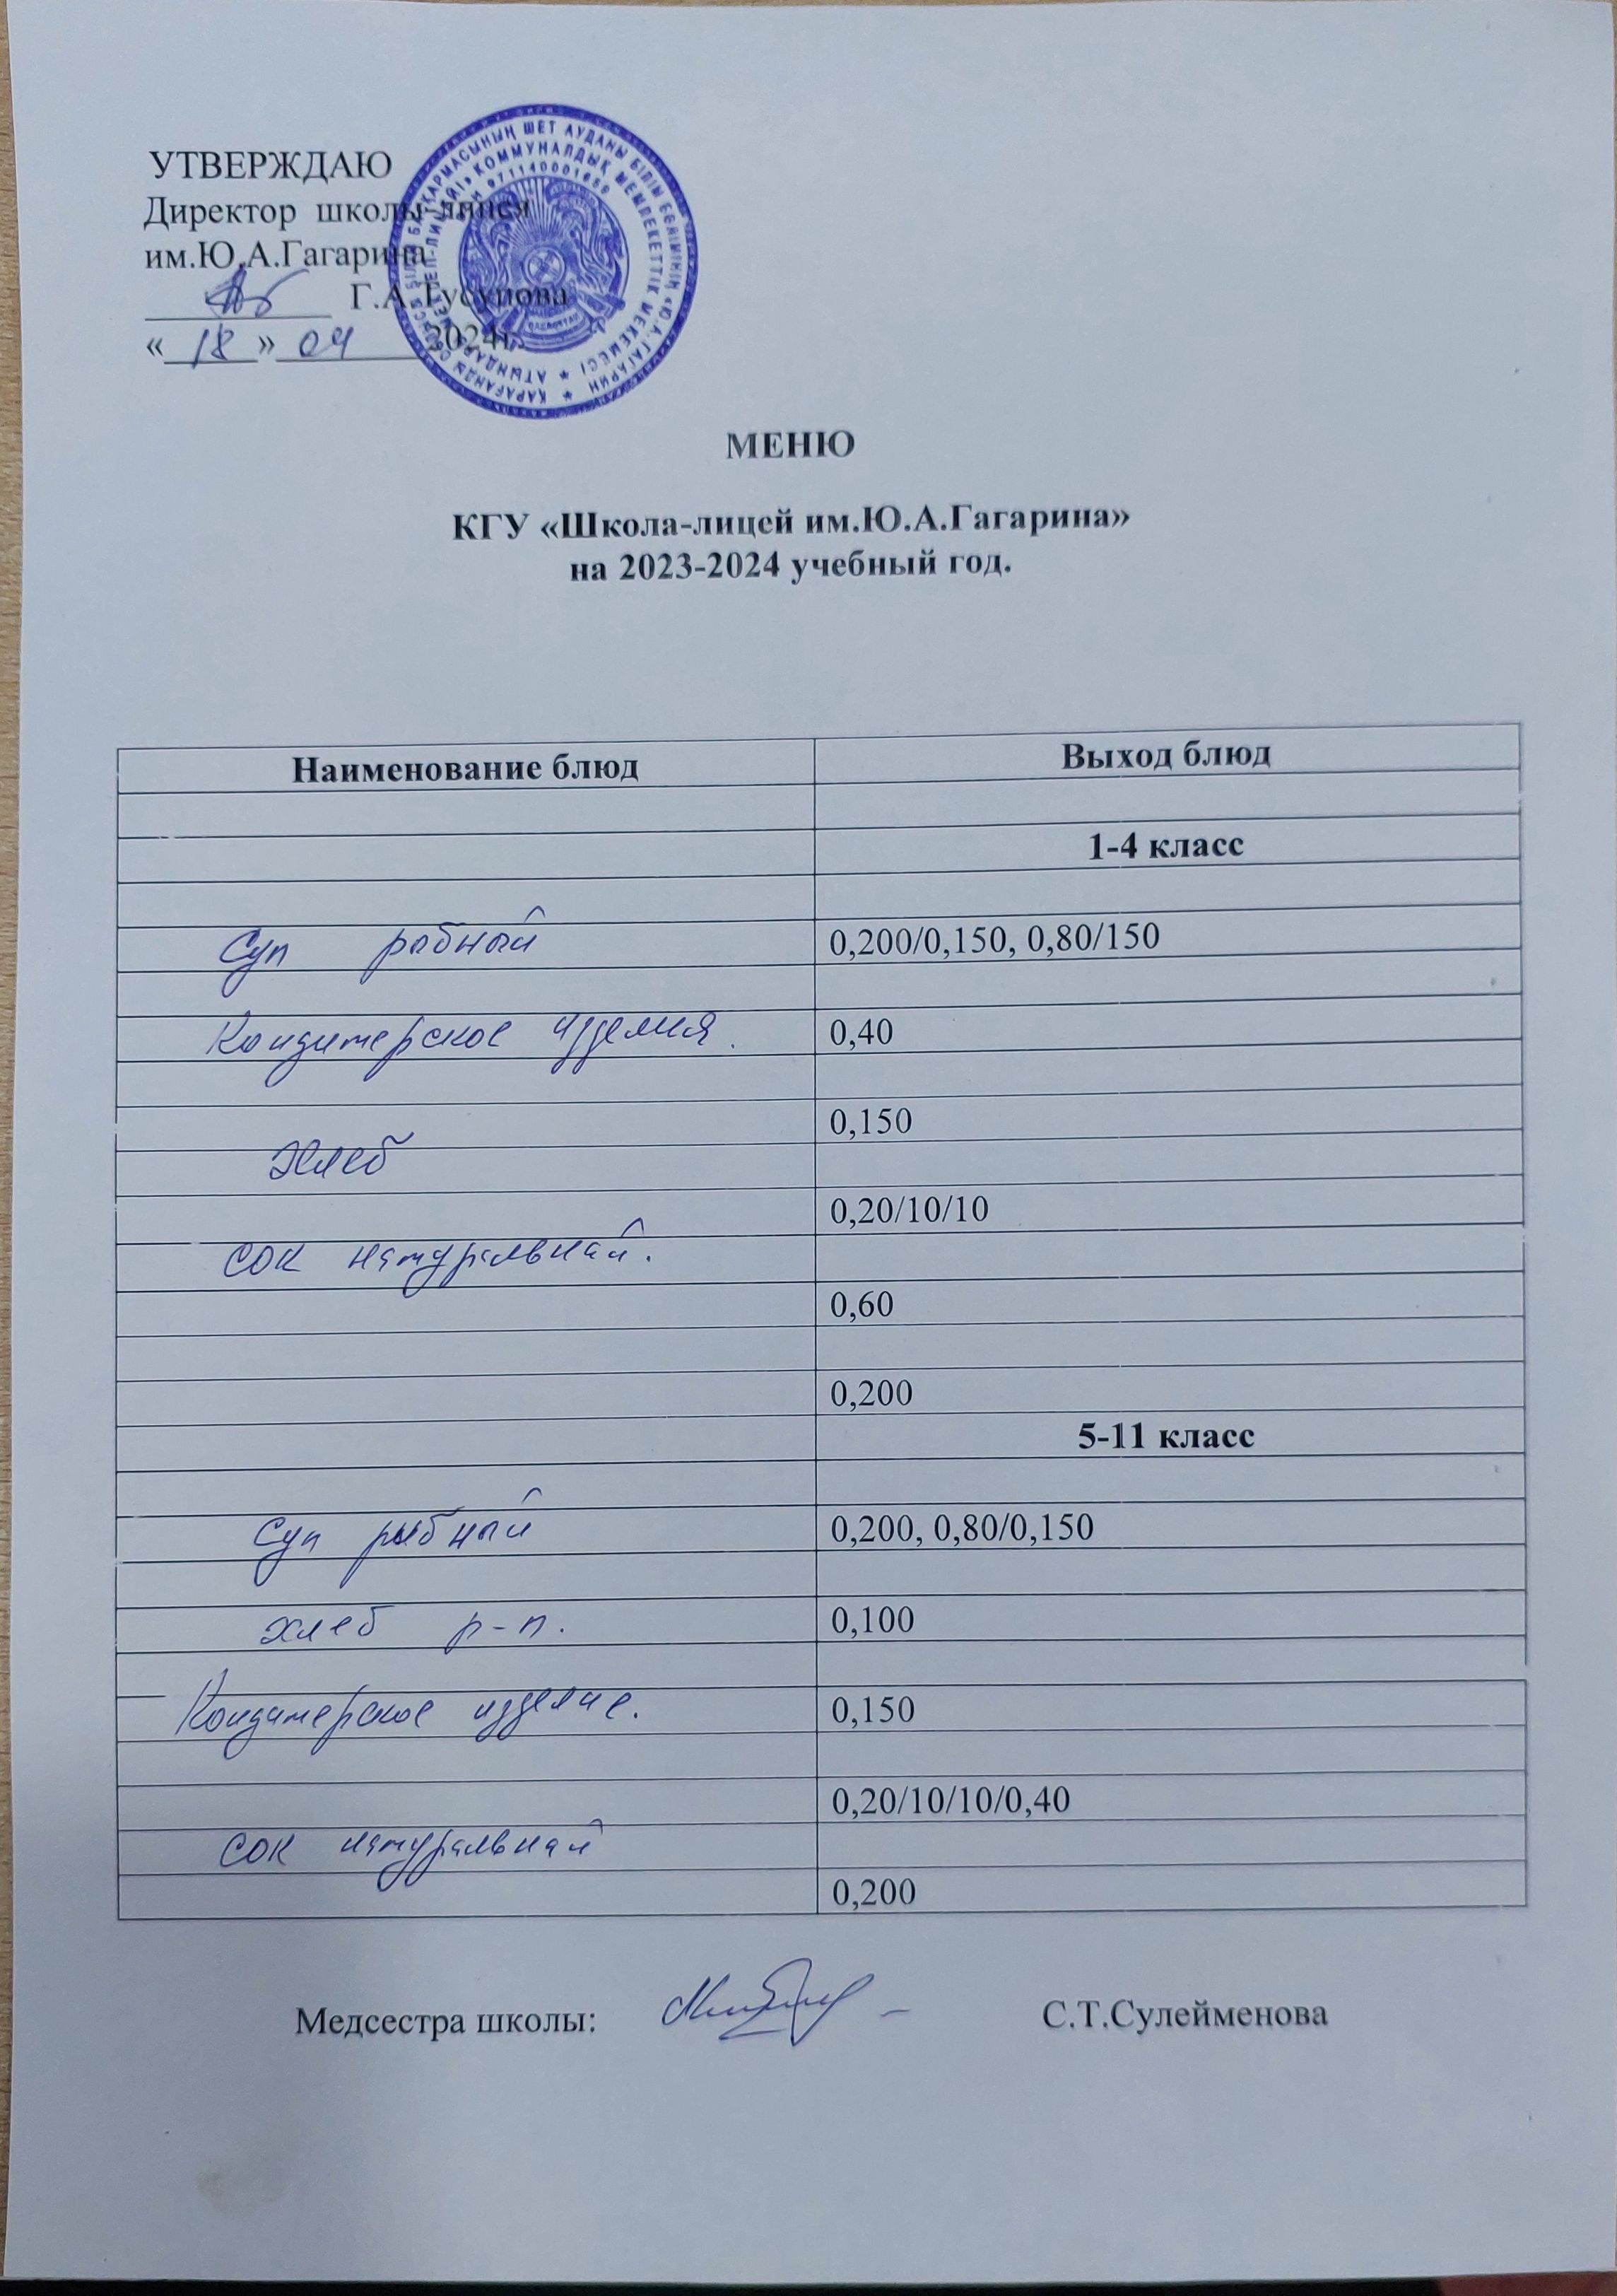 УТВЕРЖДАЮ
Директор школы-лицея
им.Ю.А.Гагарина
Г.А.Тусупова
« 18 » 04 2024г.
МЕНЮ
КГУ «Школа-лицей им.Ю.А.Гагарина»
на 2023-2024 учебный год.
Наименование блюд Выход блюд
1-4 класс
Суп рыбный 0,200/0,150, 0,80/150
Кондитерское изделия. 0,40
0,150
Хлеб
0,20/10/10
сок натуральный.
0,60
0,200
5-11 класс
Суп рыбный 0,200, 0,80/0,150
хлеб р-п. 0,100
Кондитерское изделие. 0,150
0,20/10/10/0,40
сок натуральный
0,200
Медсестра школы: С.Т.Сулейменова